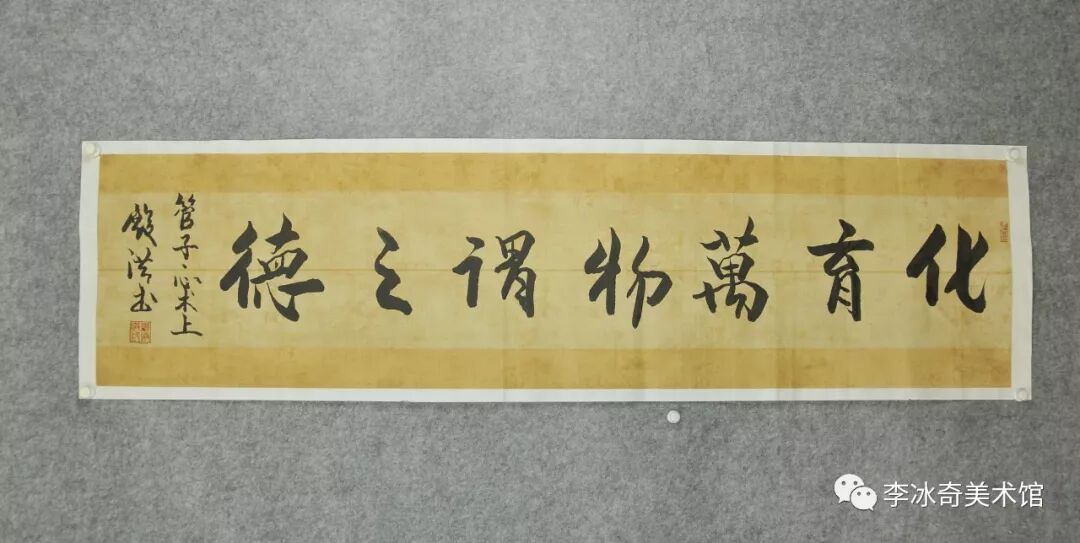 化育萬物謂之德
管子·心术上
洪书
李冰奇美术馆